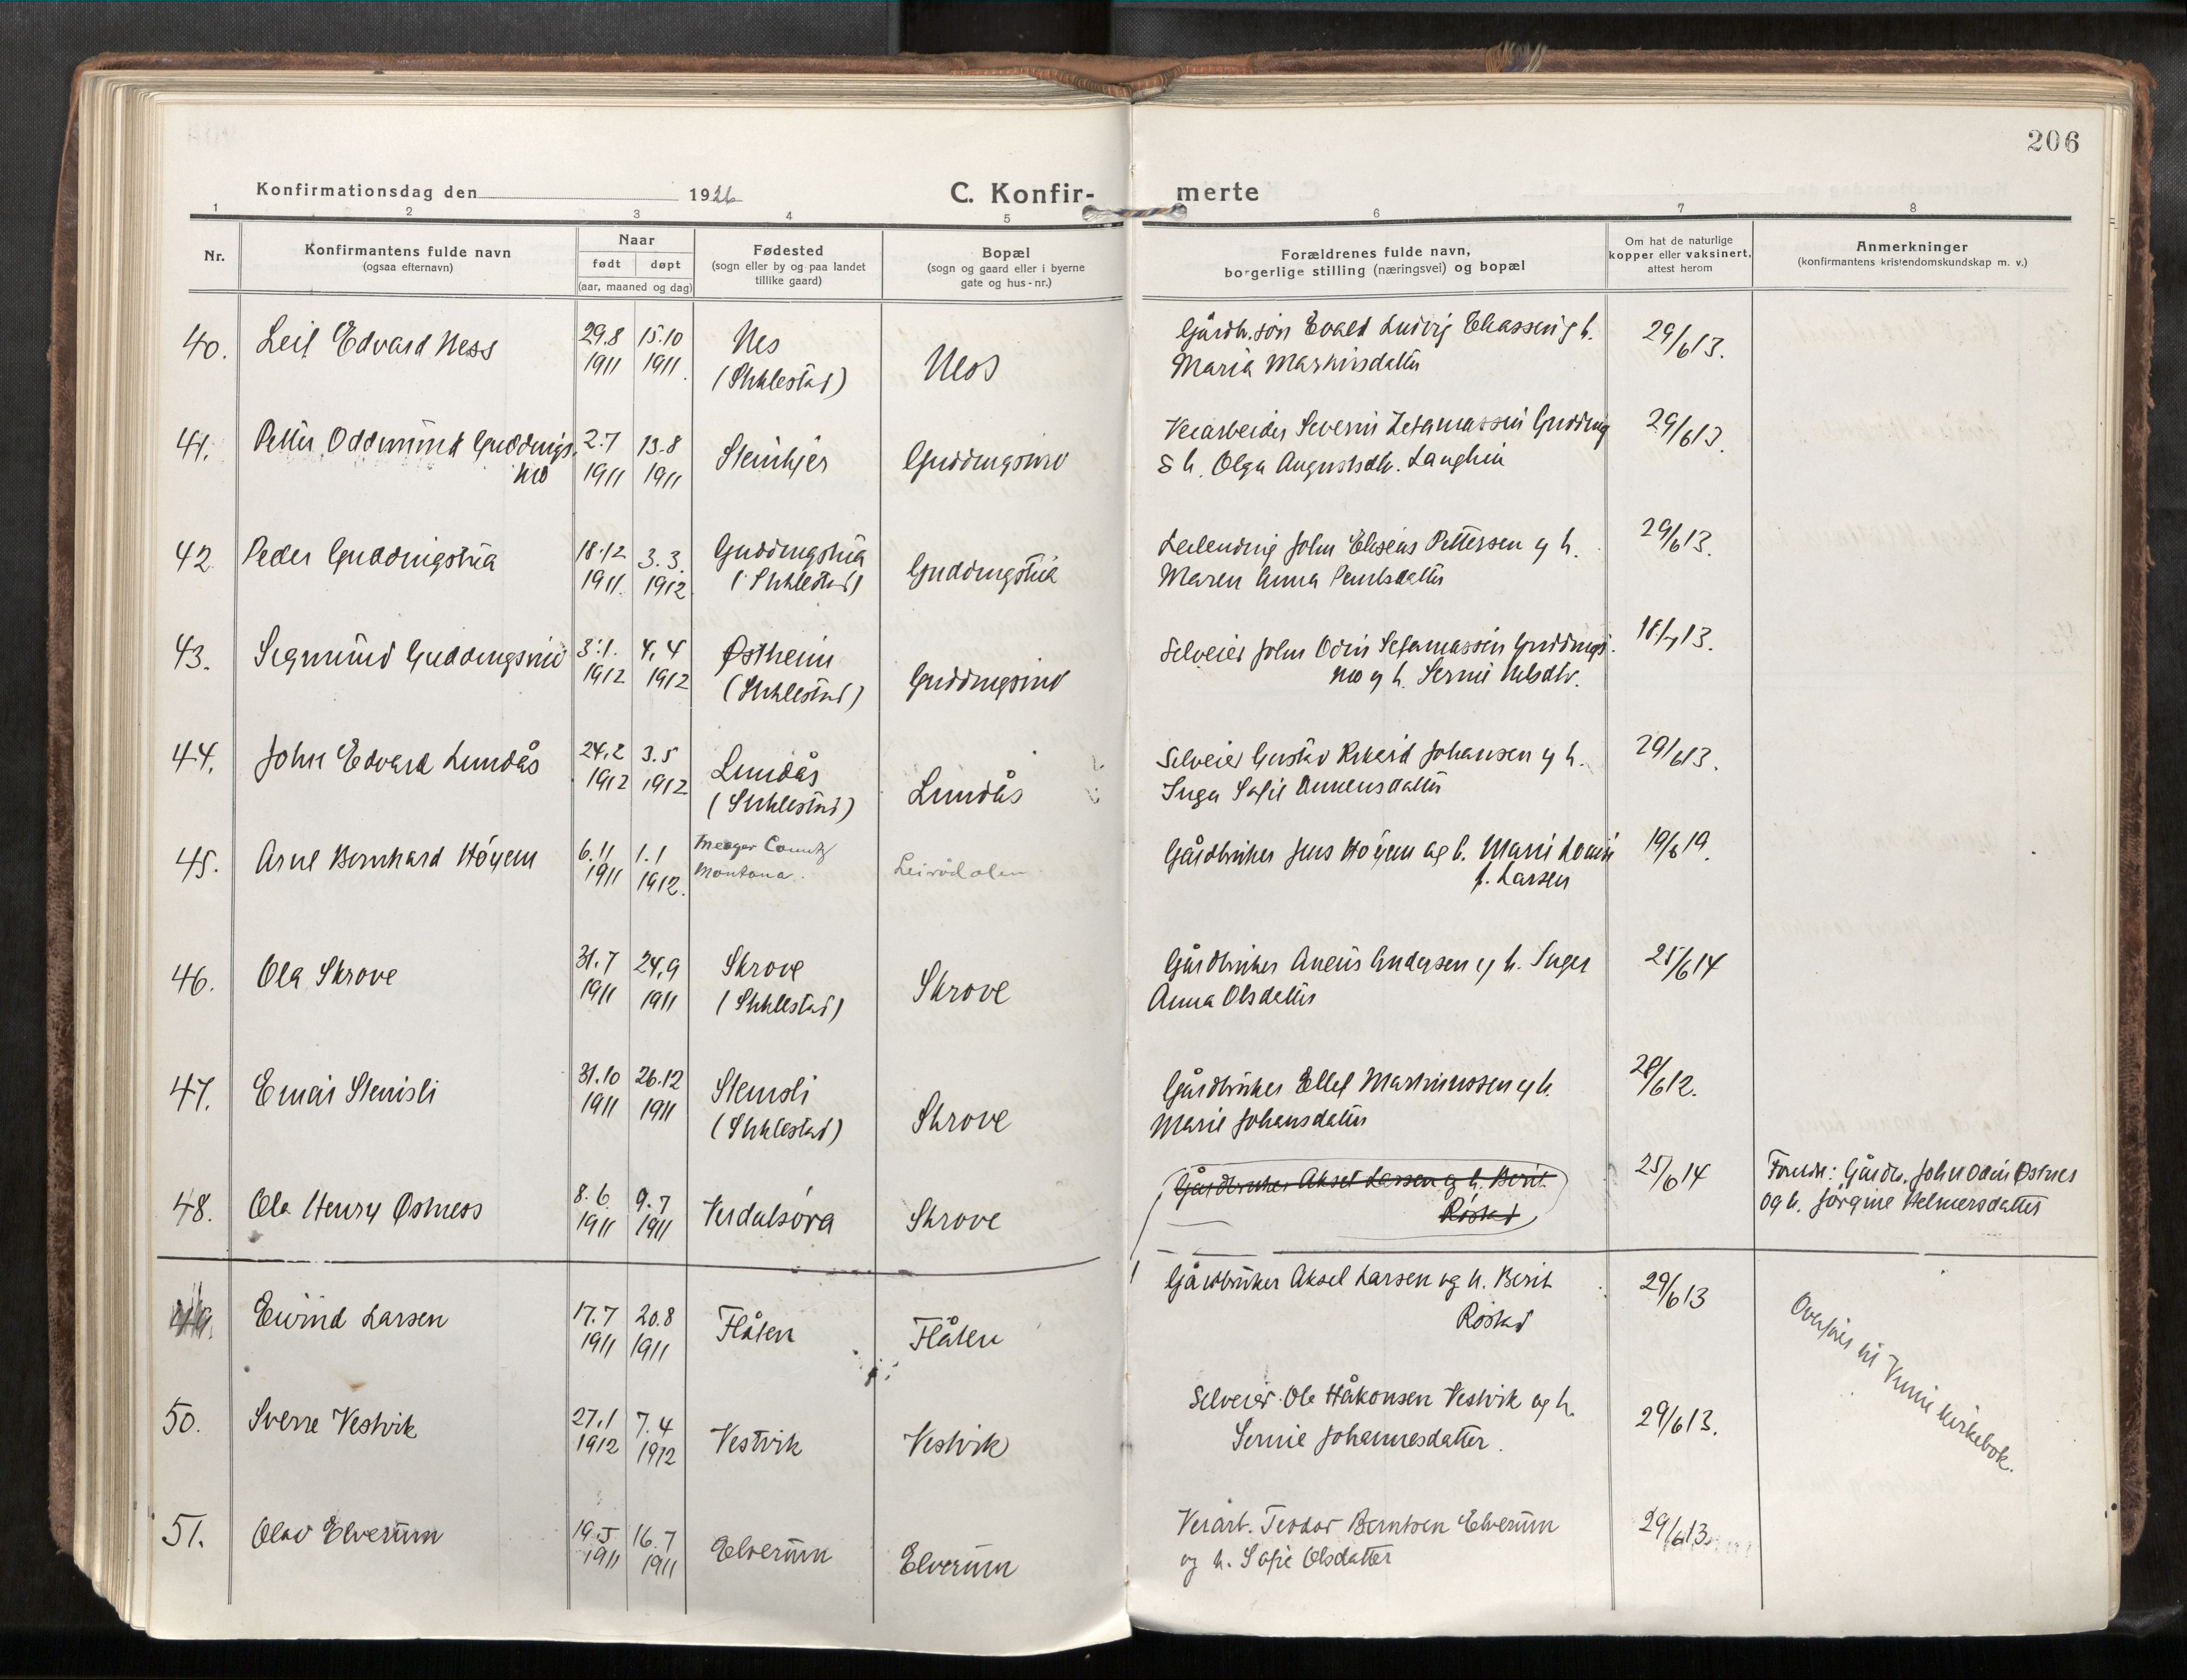 206
Konfirmationsdag den 1926
C. Konfir-
merte
1 2 3 4 5 6 7 8
Nr.
Konfirmantens fulde navn
(ogsaa efternavn)
Naar
født døpt
(aar, maaned og dag)
Fødested
(sogn eller by og paa landet
tillike gaard)
Bopæl
(sogn og gaard eller i byerne
gate og hus-nr.)
Forældrenes fulde navn,
borgerlige stilling (næringsvei) og bopæl
Om hat de naturlige
kopper eller vaksinert,
attest herom
Anmerkninger
(konfirmantens kristendomskundskap m. v.)
40. Leif Edvard Ness 29.8 15.10 Nes Gårdbr.søn Evald Ludvig Eliassen og h. 29/6 13.
1911 1911. (Stiklestad) Nes Maria Martinsdatter
41. Petter Oddmund Guddings 2.7 13.8 Steinkjer Guddingsmo Veiarbeider Severin Gudding 29/6 13.
mo 1911 1911 & h. Olga Augustsdtr.
42 Peder Guddingstua 18.12 3.3. Guddingstua Guddingstua Leilending John Eliseus Pettersen og h. 29/6 13.
1911. 1912 (Stiklestad) Maren Anna Paulsdatter
43. Sigmund Guddingsmo 3.1. 4.4 Østheim Guddingsmo Selveier John Odin Guddings- 18/7 13.
1912 1912 (Stiklestad) mo og h. Nilsdtr.
44. John Edvard Lundås 24.2 3.5 Lundås Lundås Selveier Gustav Rikard Johansen og h. 29/6 13.
1912 1912 (Stiklestad) Inga Sofie
45. Arne Bernhard Høyem 6.11 1.1 Meager County Leirådalen Gårdbruker Jens Høyem og h. Marie Lovise 19/6 19.
1911 1912. Montana. f. Larsen
46. Ola Skrove 31.7 24.9 Skrove Skrove Gårdbruker Aneus Andersen og h. Inger 25/6 14
1911 1911 (Stiklestad) Anna Olsdatter
47. Einar Stensli 31.10 26.12 Stensli Skrove Gårdbruker Ellef Martinussen og h. 28/6 12.
1911 1911 (Stiklestad) Marie Johansdatter
48. Ola Henry Østness 8.6 9.7 Verdalsøra Skrove Gårdbruker Aksel Larsen og h. Berit 25/6 14 Foreldr: Gårdbr. John Odin Østnes
1911 1911 Røstad og h. Jørgine Helmersdatter
49. Eivind Larsen 17.7 20.8 Flåten Flåten Gårdbruker Aksel Larsen og h. Berit 29/6 13
1911 1911 Røstad
Overføres til Vinne kirkebok.
50. Sverre Vestvik 27.1 7.4 Vestvik Vestvik Selveier Ole Håkonsen Vestvik og h. 29/6 13.
1912 1912 Serine Johannesdatter.
51. Olav Elverum 19.5 16.7 Elverum Elverum Veiarb. Teodor Berntsen Elverum 29/6 13.
1911 1911 og h. Sofie Olsdatter